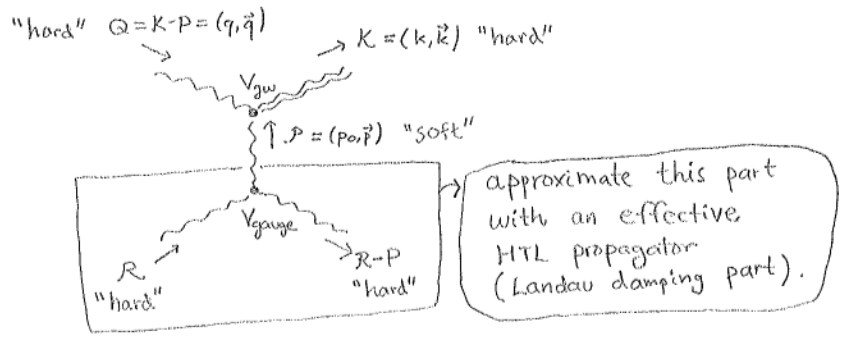 "hard" Q=K-P=(q,q⃗)
K=(k,k⃗) "hard"
Vgw
↑ P=(p₀,p⃗) "soft"
Vgauge
R
"hard"
R-P
"hard"
approximate this part
with an effective
HTL propagator
(Landau damping part).